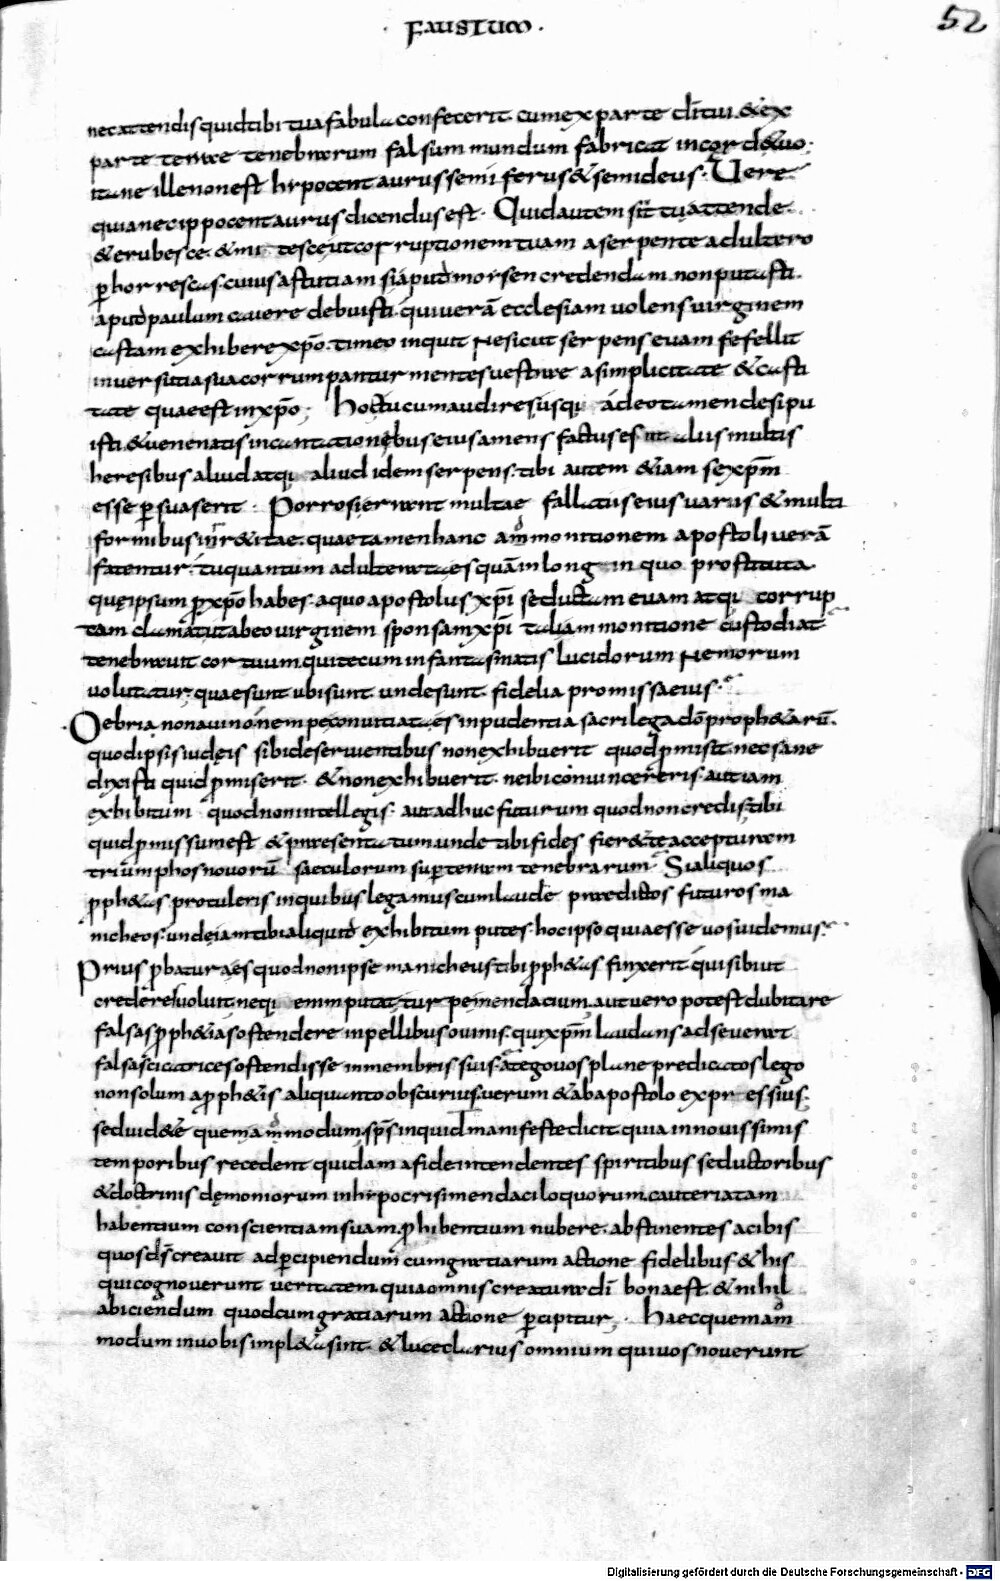 · FAUSTUM ·
52
nec attendis quid tibi tua fabula confecerit. cum ex parte dn̄i tui. & ex
parte terrae tenebrarum falsum mundum fabricat in cor d& uo·
itane ille non est hippocentaurus semiferus & semideus· Uere
quia nec ippocentaurus dicendus est· Quid autem sit tu attende·
& erubesce. & mitesce ut corruptionem tuam a serpente adultero
ꝑhorrescas. cuius astutiam si apud morsen credendam. non putasti.
apud paulum cauere debuisti. qui uerā ecclesiam uolens uirginem
castam exhibere xp̄o. timeo inquit Ne sicut serpens euam fefellit
in uersutia sua corrumpantur mentes uestrae a simplicitate & casti
tate quae est in xp̄o; Hoc tu cum audires usqi adeo tamen desipu
isti. & uenenatis incantationebus eius amens factus es ut alus multis
heresibus aliud atqi aliud idem serpens. tibi autem &iam se xp̄m
esse ꝑsuaserit· Porro si errant multae fallatus eius uariis & multi
formibus inr&itae. quae tamen hanc ammonitionem apostoli uerā
fatentur. tu quantum adulterataes quā in long in quo prostituta
quęipsum ꝓ xp̄o habes. a quo apostolus xp̄i seductam euam atqi corrup
tam clamat ut ab eo uirginem sponsam xp̄i tali ammonitione custodiat
tenebrauit cor tuum. qui tecum in fantasmatis lucidorum Nemorum
uolutatur. quae sunt ubi sunt. unde sunt. fidelia promissa eius.
O ebria non a uino. nempe conuitiataes inpudentia sacrilega dō proph&arū.
quod ipsis iudęis sibi deseruientibus non exhibuerit quod ꝓmisit. nec sane
dixisti quid ꝓmiserit. & non exhibuerit. ne ibi conuincereris. aut iam
exhibitum quod non intellegis. aut adhuc futurum quod non credis. tibi
quid ꝓmissum est & praesentatum unde tibi fides fier& te accepturam
triumphos nouorū saeculorum suꝑ terram tenebrarum· Si aliquos
ꝓph&as protuleris in quibus legamus cum laude praedictos futuros ma
nicheos. unde iam tibi aliquid exhibitum putes. hoc ipso quia esse uos uidemus.
Prius ꝓbatura es quod non ipse manicheus tibi ꝓph&as finxerit. qui sibi ut
crederes uoluit. neqi enim putatur pei mendacium. aut uero potest dubitare
falsas ꝓph&ias ostendere in pellibus ouinis. qui xp̄m laudans adseuerat
falsas cicatrices ostendisse in membris suis. at ego uos plane predicatos lego
non solum a ꝓph&is aliquanto obscurius. uerum & ab apostolo expressius.
sed uid&e quemammodum. sp̄s inquid manifeste dicit. quia in nouissimis
temporibus recedent quidam a fide intendentes spiritibus seductoribus
& doctrinis dęmoniorum in hipocrisi mendaciloquorum. cauteriatam
habentium conscientiam suam. ꝓhibentium nubere. abstinentes a cibis
quos dš creauit ad ꝑcipiendum cum gratiarum actione fidelibus & his
qui cognouerunt ueritatem. quia omnis creatura dī bona est. & nihil
abiciendum quod cum gratiarum actione ꝑcipitur; Haec quemam
modum in uobis impl&a sint. & luce clarius omnium qui uos nouerunt
Digitalisierung gefördert durch die Deutsche Forschungsgemeinschaft - DFG